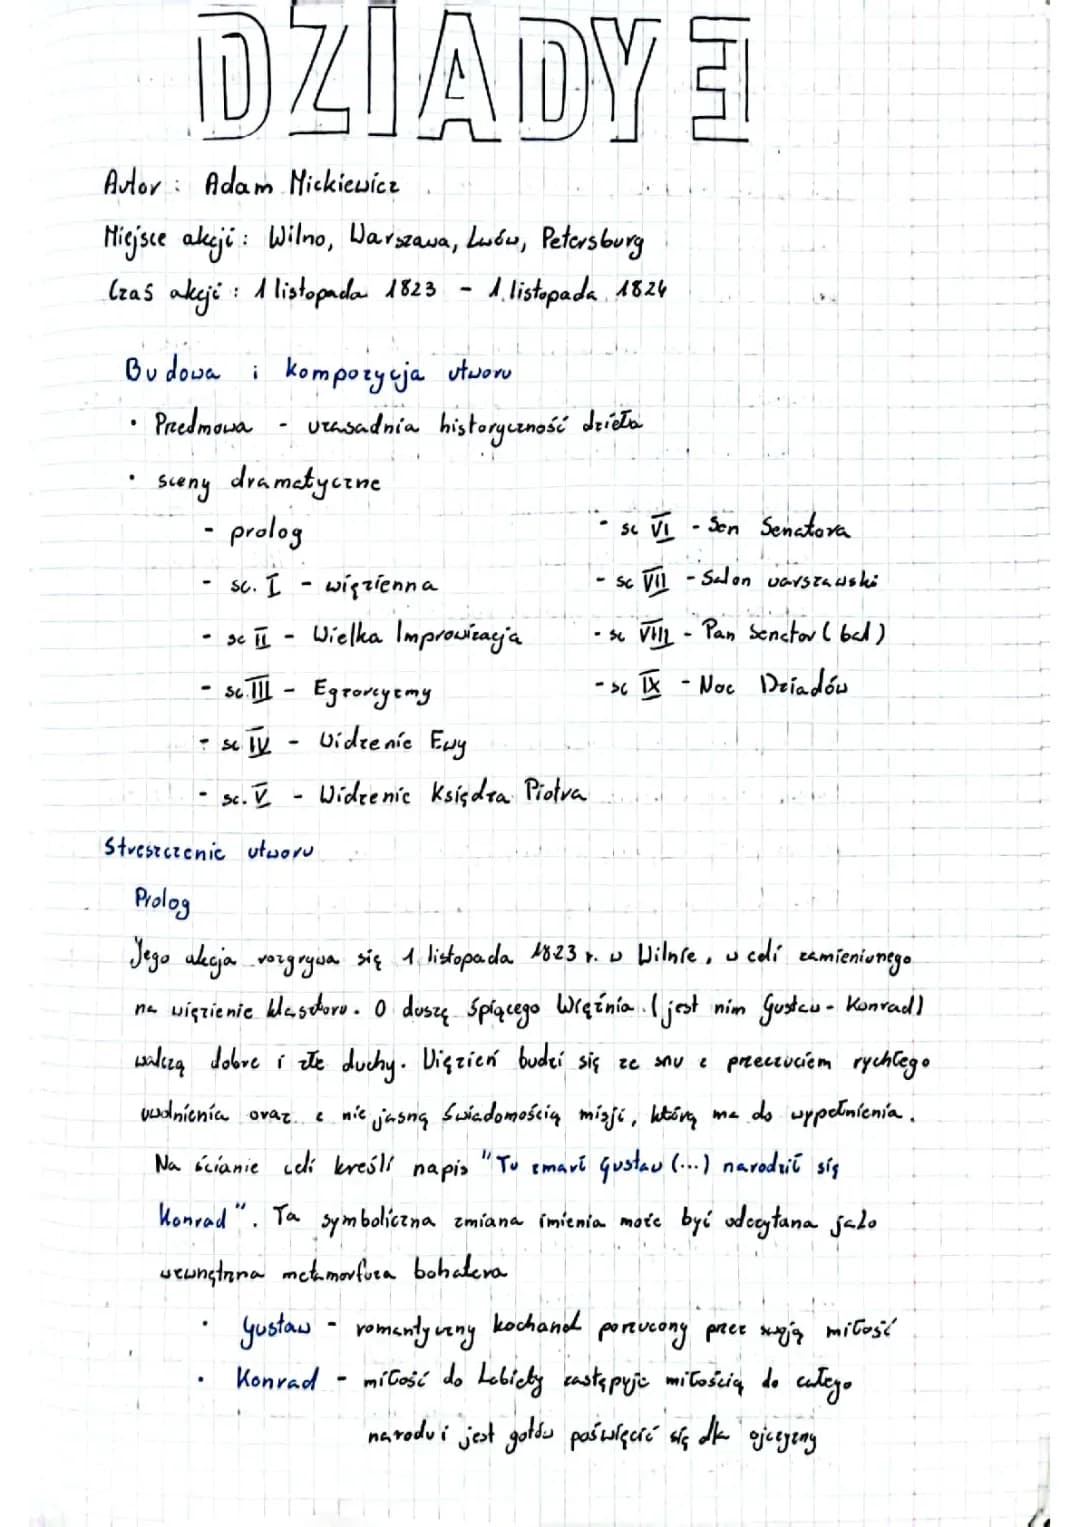 DZIADY III
Autor: Adam Mickiewicz
Miejsce akcji: Wilno, Warszawa, Lwów, Petersburg
Czas akcji: 1 listopada 1823 - 1 listopada 1824
Budowa i kompozycja utworu
• Przedmowa - uzasadnia historyczność dzieła
• sceny dramatyczne
- prolog
- sc. I - więzienna
- sc II - Wielka Improwizacja
- sc. III - Egzorcyzmy
- sc IV - Widzenie Ewy
- sc. V - Widzenie Księdza Piotra
- sc VI - Sen Senatora
- sc VII - Salon warszawski
- sc VIII - Pan Senator (bal)
- sc IX - Noc Dziadów
Streszczenie utworu
Prolog
Jego akcja rozgrywa się 1 listopada 1823 r. w Wilnie, w celi zamienionego
na więzienie klasztoru. O duszę śpiącego Więźnia (jest nim Gustaw-Konrad)
walczą dobre i złe duchy. Więzień budzi się ze snu z przeczuciem rychłego
uwolnienia oraz z niejasną świadomością misji, którą ma do wypełnienia.
Na ścianie celi kreśli napis "Tu zmarł Gustaw (...) narodził się
Konrad". Ta symboliczna zmiana imienia może być odczytana jako
wewnętrzna metamorfoza bohatera
• Gustaw - romantyczny kochanek porzucony przez swoją miłość
• Konrad - miłość do kobiety zastępuje miłością do całego
narodu i jest gotów poświęcić się dla ojczyzny